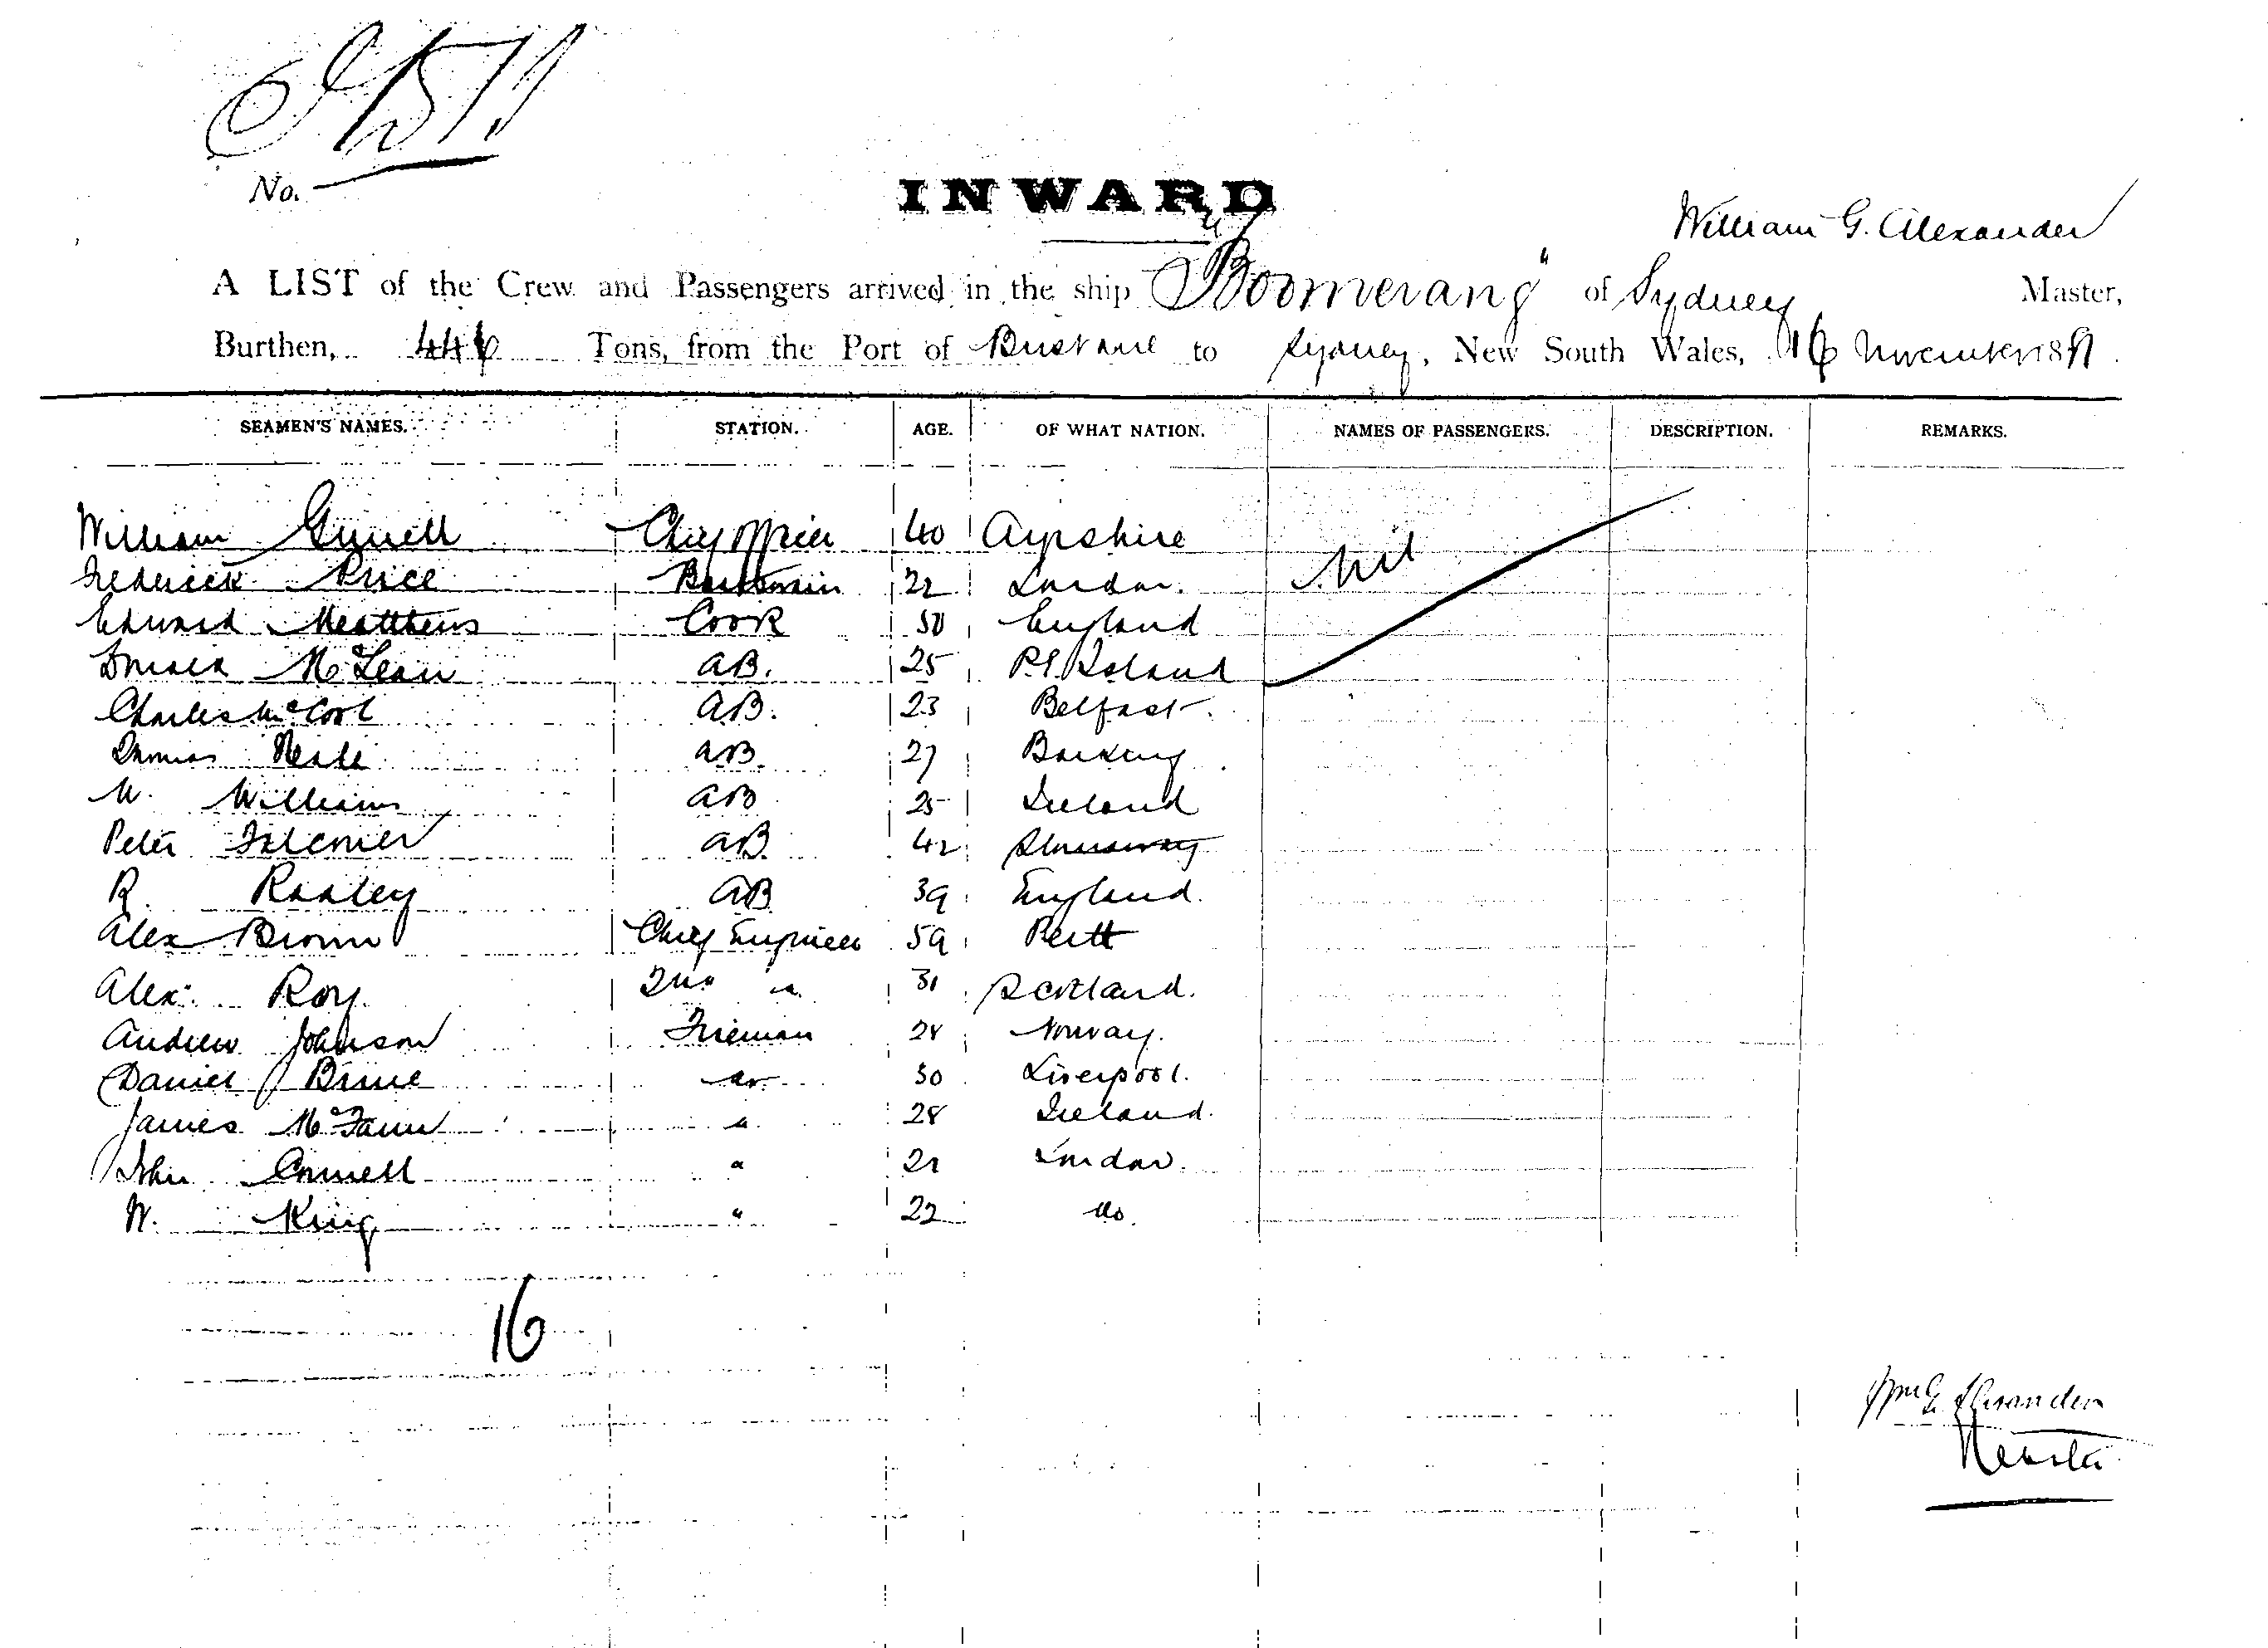 No.
INWARD
William G. Alexander
A LIST of the Crew and Passengers arrived in the ship "Boomerang" of Sydney Master,
Burthen, 446 Tons, from the Port of Brisbane to Sydney, New South Wales, 16 November 18
SEAMEN'S NAMES. STATION. AGE. OF WHAT NATION. NAMES OF PASSENGERS. DESCRIPTION. REMARKS.
William Chief Officer 40 Ayrshire Nil
Frederick Price Boatswain 22 London.
Edward Matthews Cook 50 England
McLean AB. 25 P.E. Island
Charles McCool AB. 23 Belfast.
Thomas Neale AB. 27 Barking
W. Williams AB 25 Ireland
Peter Falconer AB 42 Stornoway
R. AB 39 England.
Alex Brown Chief Engineer 59 Perth
Alex. Roy. 2nd " 31 Scotland.
Andrew Johnson Fireman 28 Norway.
Daniel do 30 Liverpool.
James " 28 Ireland.
John Connell " 21 London.
W. King " 22 do.
16
Wm G Alexander
Master